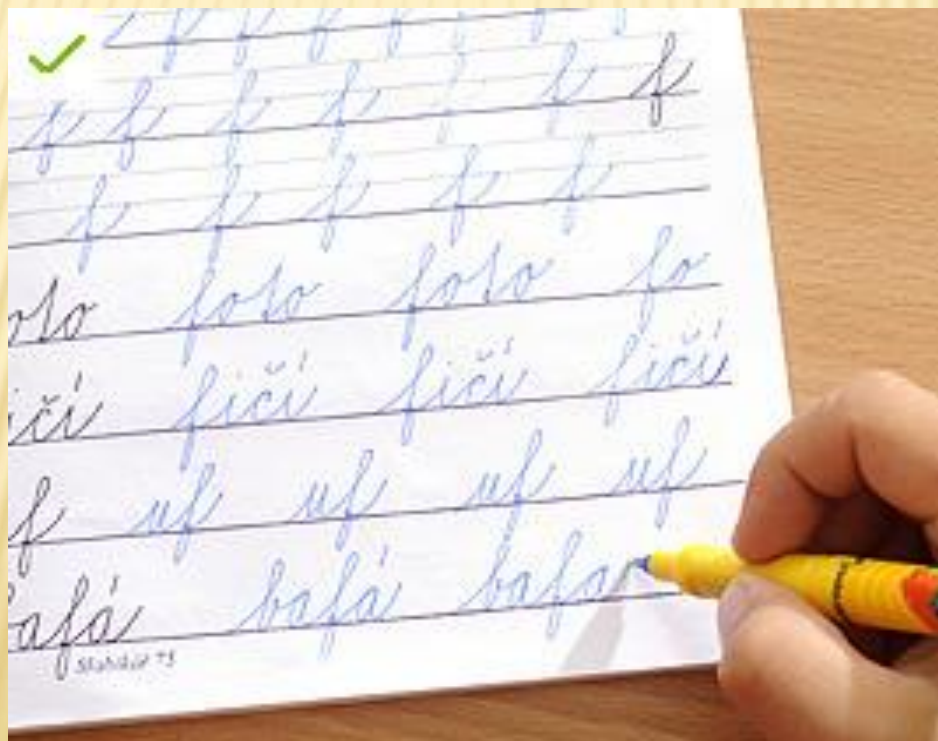 f f f f f f f
f f f f f f f
f f f f f
oto foto foto fo
ičí fičí fičí fičí
f uf uf uf uf
bafá bafá bafa